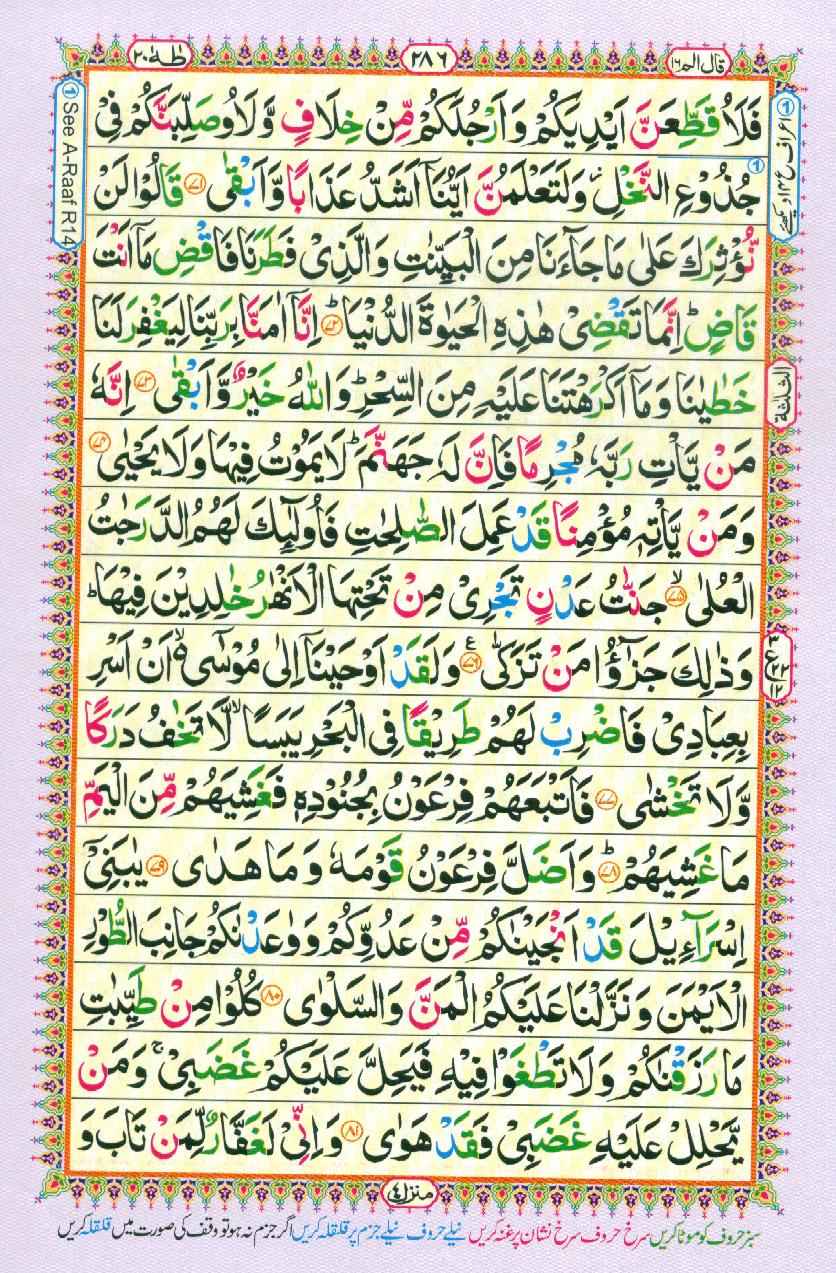 قال الم ١٦
٢٨٦
طٰهٰ ٢٠
فَلَاُقَطِّعَنَّ اَيْدِيَكُمْ وَاَرْجُلَكُمْ مِّنْ خِلَافٍ وَّلَاُوصَلِّبَنَّكُمْ فِىْ
جُذُوْعِ النَّخْلِ وَلَتَعْلَمُنَّ اَيُّنَآ اَشَدُّ عَذَابًا وَّاَبْقٰى ﴿٧١﴾ قَالُوْا لَنْ
نُّؤْثِرَكَ عَلٰى مَا جَآءَنَا مِنَ الْبَيِّنٰتِ وَالَّذِىْ فَطَرَنَا فَاقْضِ مَآ اَنْتَ
قَاضٍ ؕ اِنَّمَا تَقْضِىْ هٰذِهِ الْحَيٰوةَ الدُّنْيَا ؕ ﴿٧٢﴾ اِنَّآ اٰمَنَّا بِرَبِّنَا لِيَغْفِرَ لَنَا
خَطٰيٰنَا وَمَآ اَكْرَهْتَنَا عَلَيْهِ مِنَ السِّحْرِ ؕ وَاللّٰهُ خَيْرٌ وَّاَبْقٰى ﴿٧٣﴾ اِنَّهٗ
مَنْ يَّاْتِ رَبَّهٗ مُجْرِمًا فَاِنَّ لَهٗ جَهَنَّمَ ؕ لَا يَمُوْتُ فِيْهَا وَلَا يَحْيٰى ﴿٧٤﴾
وَمَنْ يَّاْتِهٖ مُؤْمِنًا قَدْ عَمِلَ الصّٰلِحٰتِ فَاُولٰٓئِكَ لَهُمُ الدَّرَجٰتُ
الْعُلٰى ۙ ﴿٧٥﴾ جَنّٰتُ عَدْنٍ تَجْرِىْ مِنْ تَحْتِهَا الْاَنْهٰرُ خٰلِدِيْنَ فِيْهَا ؕ
وَذٰلِكَ جَزٰٓؤُا مَنْ تَزَكّٰى ﴿٧٦﴾ ع وَلَقَدْ اَوْحَيْنَآ اِلٰى مُوْسٰٓى ۙ اَنْ اَسْرِ
بِعِبَادِىْ فَاضْرِبْ لَهُمْ طَرِيْقًا فِى الْبَحْرِ يَبَسًا ۙ لَّا تَخٰفُ دَرَكًا
وَّلَا تَخْشٰى ﴿٧٧﴾ فَاَتْبَعَهُمْ فِرْعَوْنُ بِجُنُوْدِهٖ فَغَشِيَهُمْ مِّنَ الْيَمِّ
مَا غَشِيَهُمْ ؕ ﴿٧٨﴾ وَاَضَلَّ فِرْعَوْنُ قَوْمَهٗ وَمَا هَدٰى ﴿٧٩﴾ يٰبَنِىْٓ
اِسْرَآءِيْلَ قَدْ اَنْجَيْنٰكُمْ مِّنْ عَدُوِّكُمْ وَوٰعَدْنٰكُمْ جَانِبَ الطُّوْرِ
الْاَيْمَنَ وَنَزَّلْنَا عَلَيْكُمُ الْمَنَّ وَالسَّلْوٰى ﴿٨٠﴾ كُلُوْا مِنْ طَيِّبٰتِ
مَا رَزَقْنٰكُمْ وَلَا تَطْغَوْا فِيْهِ فَيَحِلَّ عَلَيْكُمْ غَضَبِىْ ۚ وَمَنْ
يَّحْلِلْ عَلَيْهِ غَضَبِىْ فَقَدْ هَوٰى ﴿٨١﴾ وَاِنِّىْ لَغَفَّارٌ لِّمَنْ تَابَ وَ
① See A-Raaf R14
الثلثة
منزل ٤
سبز حروف کو موٹا کریں سرخ حروف سرخ نشان پر غنہ کریں نیلے حروف نیلے جزم پر قلقلہ کریں اگر جزم نہ ہو تو وقف کی صورت میں قلقلہ کریں